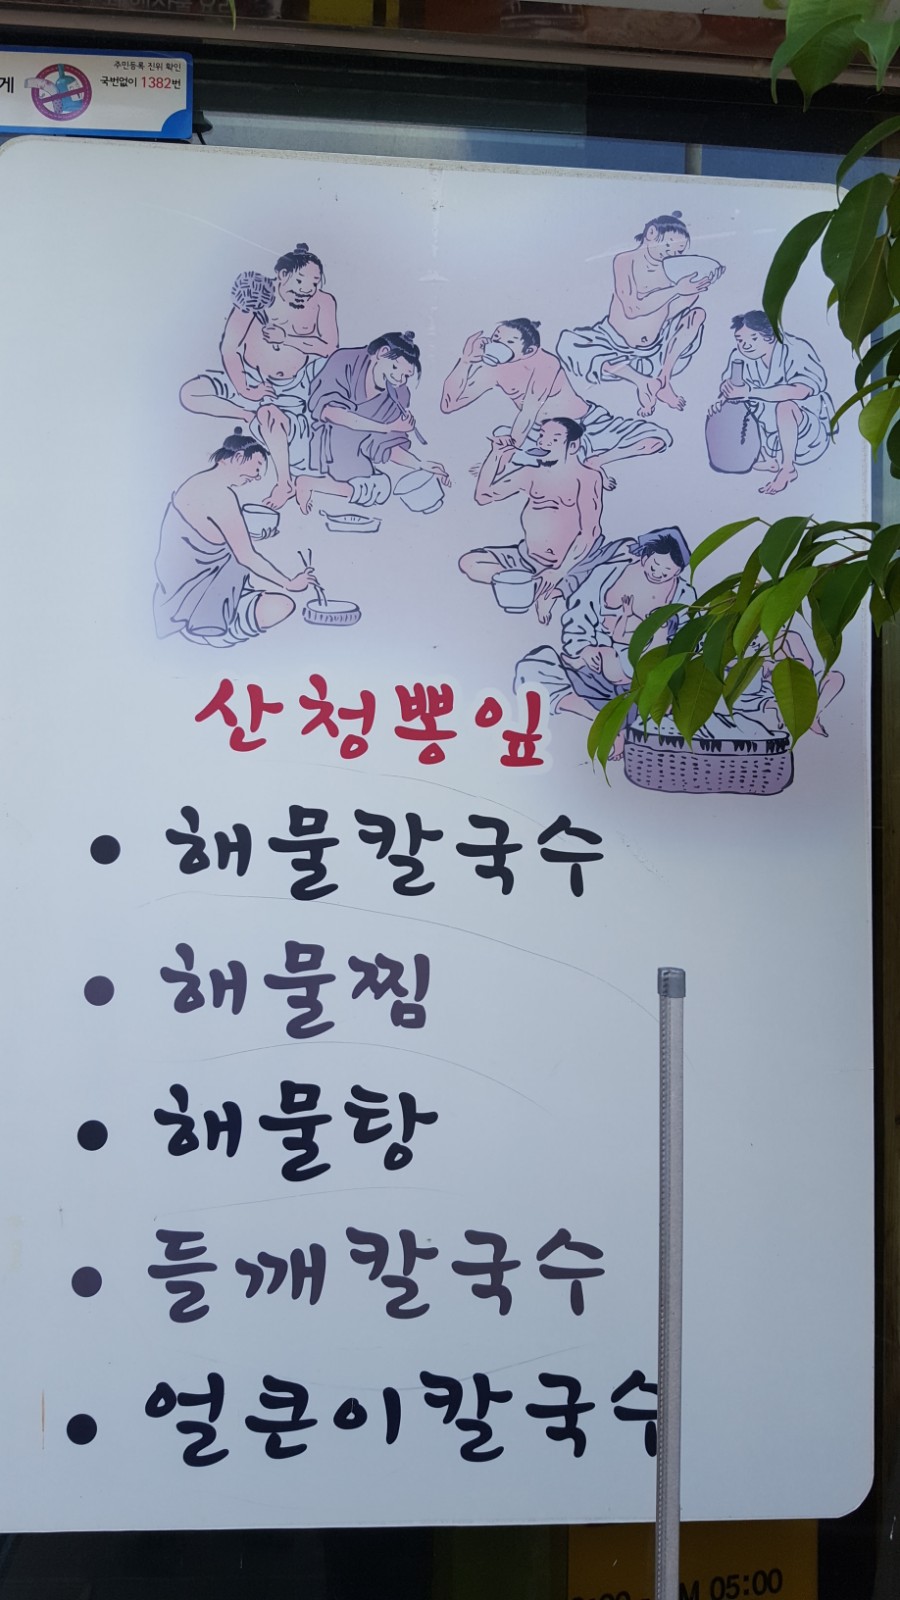 게
주민등록 진위 확인
국번없이 1382번
산청뽕잎
• 해물칼국수
• 해물찜
• 해물탕
• 들깨칼국수
• 얼큰이칼국수
05:00